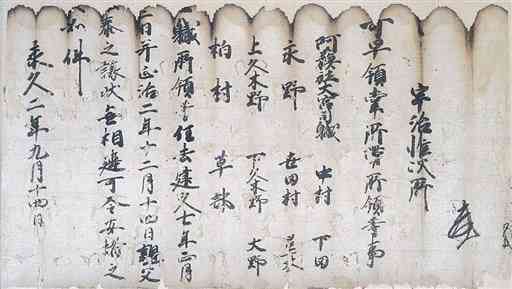 宇治惟次所
可早領掌所帯所領等事
阿蘇社大宮司職 中村 下田
永野 世田村
上久木野 下久木野 大野
柏村 草部
職所領等任去建久七年正月
日并正治二年十二月十四日親父
泰之譲状無相違可令安堵之
如件
承久二年九月十四日